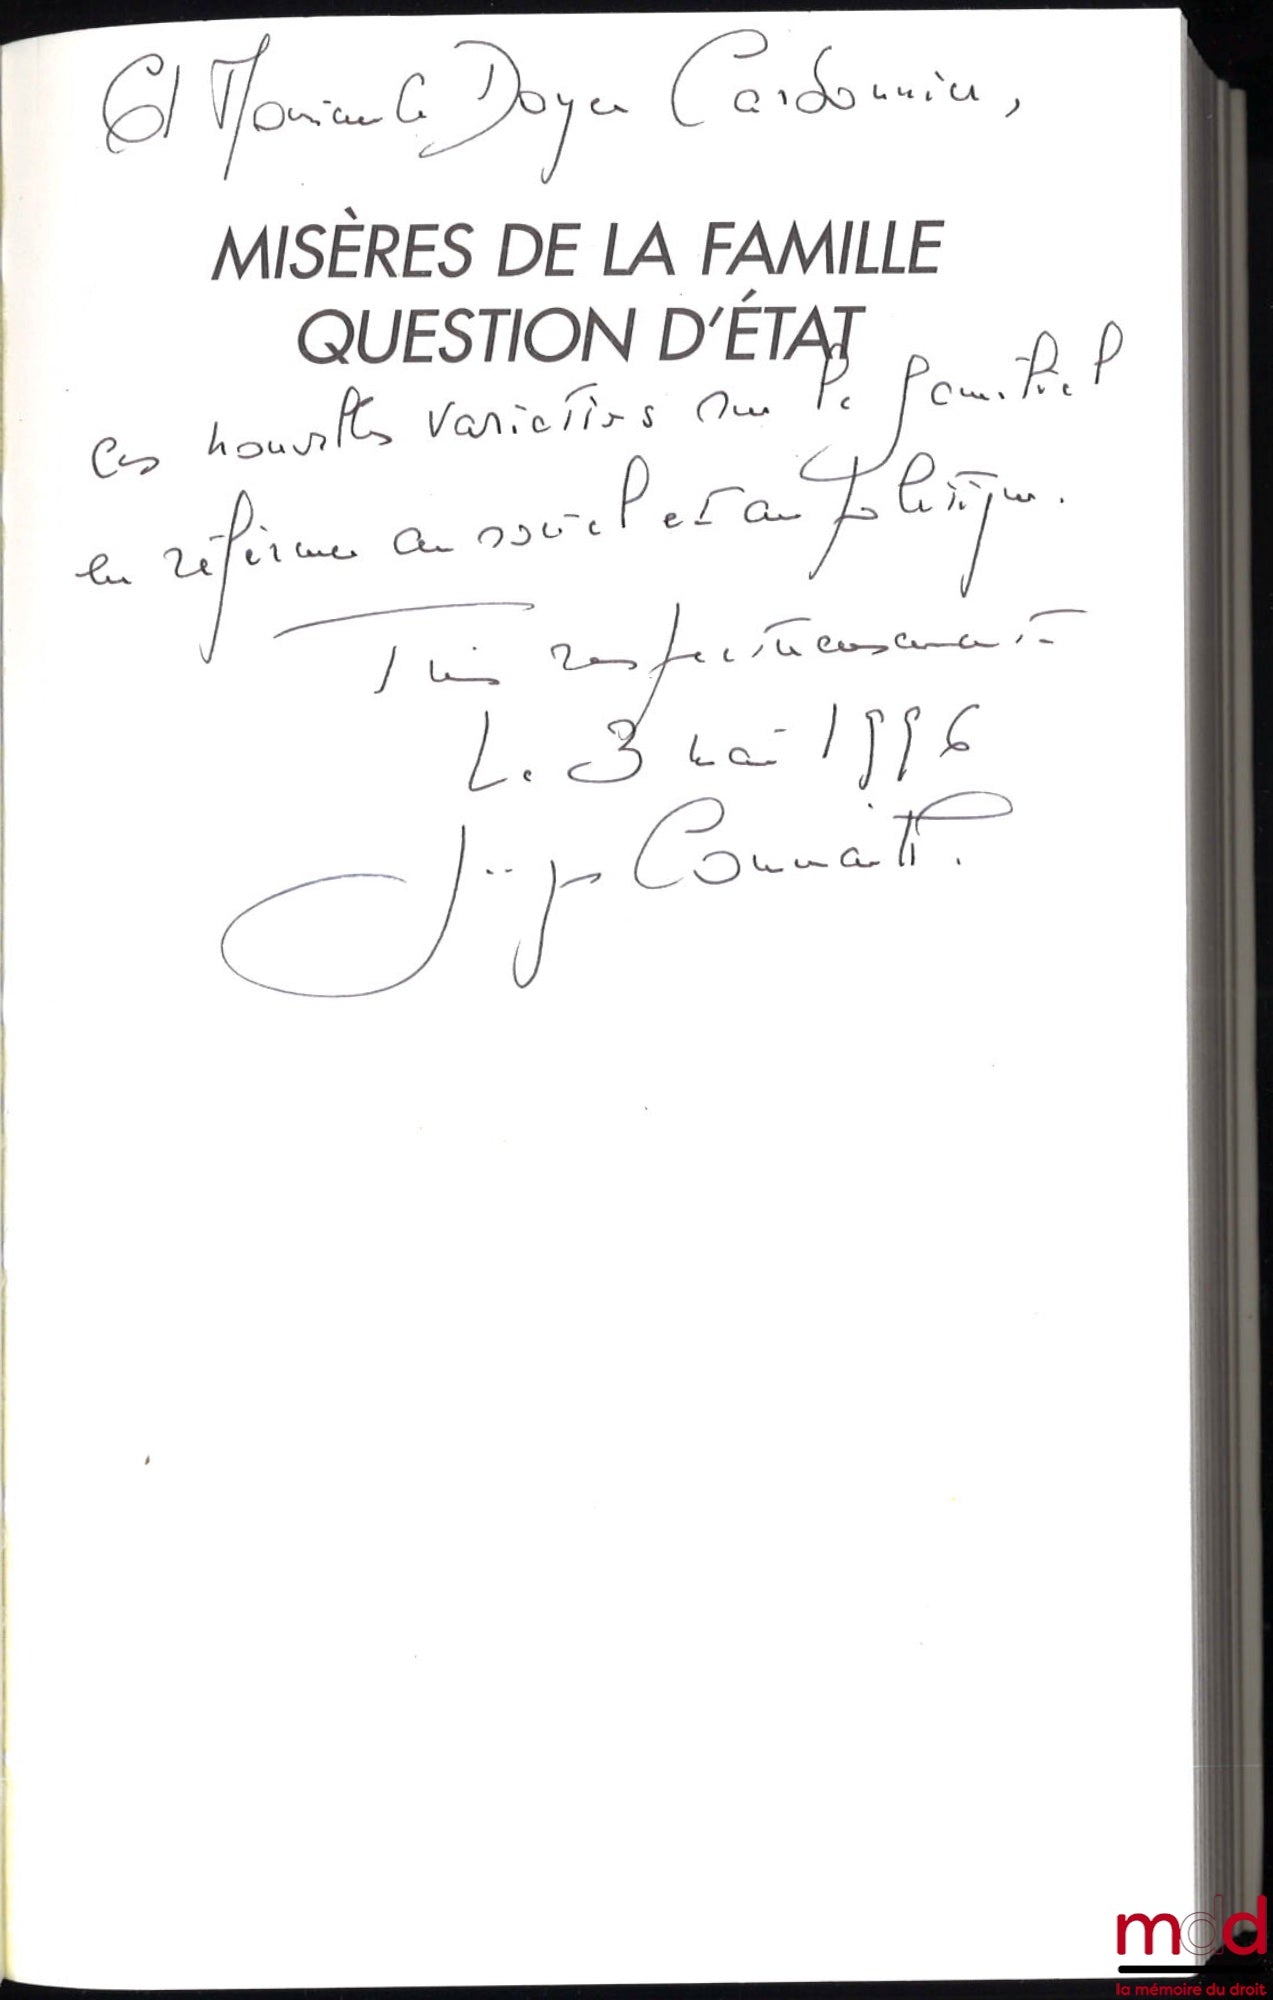 A Monsieur le Doyen Carbonnier,
MISÈRES DE LA FAMILLE
QUESTION D'ÉTAT
Ces nouvelles variations sur le familial
en référence au social et au politique.
Très respectueusement
Le 3 mai 1996
Jacques Commaille.
mdd
la mémoire du droit